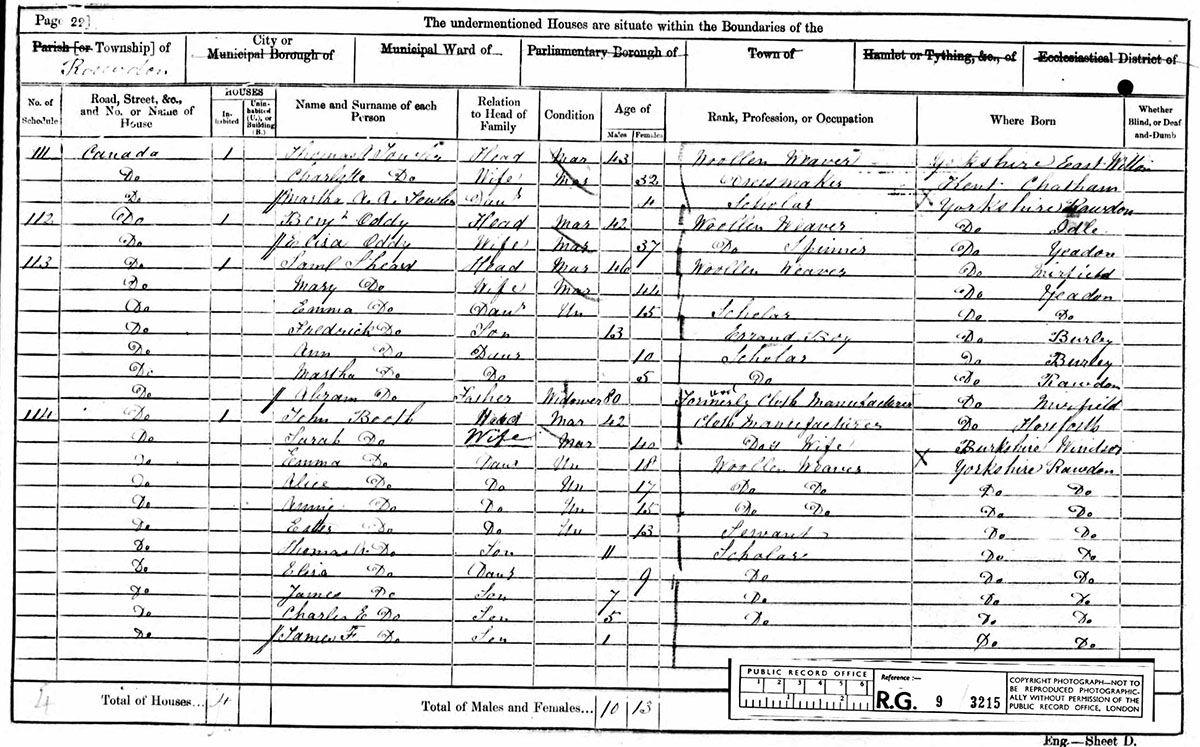 Page 22]
The undermentioned Houses are situate within the Boundaries of the
Parish [or Township] of
City or Municipal Borough of
Municipal Ward of
Parliamentary Borough of
Town of
Hamlet or Tything, &c., of
Ecclesiastical District of
Rawdon
No. of Schedule
Road, Street, &c., and No. or Name of House
HOUSES
Inhabited
Uninhabited (U.), or Building (B.)
Name and Surname of each Person
Relation to Head of Family
Condition
Age of
Males
Females
Rank, Profession, or Occupation
Where Born
Whether Blind, or Deaf-and-Dumb
111 Canada 1 Thomas Fowler Head Mar 43 Woollen Weaver Yorkshire East Witton
Do Charlotte Do Wife Mar 32 Dressmaker Kent Chatham
Do Martha A. A. Fowler Daur 4 Scholar Yorkshire Rawdon
112 Do 1 Benjn Oddy Head Mar 42 Woollen Weaver Do Idle
Do Eliza Oddy Wife Mar 37 Do Spinner Do Yeadon
113 Do 1 Saml Sheard Head Mar 46 Woollen Weaver Do Mirfield
Do Mary Do Wife Mar 44 Do Yeadon
Do Emma Do Daur Un 15 Scholar Do Do
Do Fredrick Do Son 13 Errand Boy Do Burley
Do Ann Do Daur 10 Scholar Do Burley
Do Martha Do Do 5 Do Do Rawdon
Do Abram Do Father Widower 80 Formerly Cloth Manufacturer Do Mirfield
114 Do 1 John Booth Head Mar 42 Cloth Manufacturer Do Horsforth
Do Sarah Do Wife Mar 40 Do's Wife Burkshire Windsor
Do Emma Do Daur Un 18 Woollen Weaver Yorkshire Rawdon
Do Alice Do Do Un 17 Do Do Do Do
Do Annie Do Do Un 15 Do Do Do Do
Do Esther Do Do Un 13 Servant Do Do
Do Thomas Do Son 11 Scholar Do Do
Do Eliza Do Daur 9 Do Do Do
Do James Do Son 7 Do Do Do
Do Charles E Do Son 5 Do Do Do
Do James F Do Son 1 Do Do
4 Total of Houses... 4 Total of Males and Females... 10 13
PUBLIC RECORD OFFICE
1 2 3 4 5 6
1 2
Reference :—
R.G. 9 / 3215
COPYRIGHT PHOTOGRAPH—NOT TO
BE REPRODUCED PHOTOGRAPHIC-
ALLY WITHOUT PERMISSION OF THE
PUBLIC RECORD OFFICE, LONDON
Eng.—Sheet D.